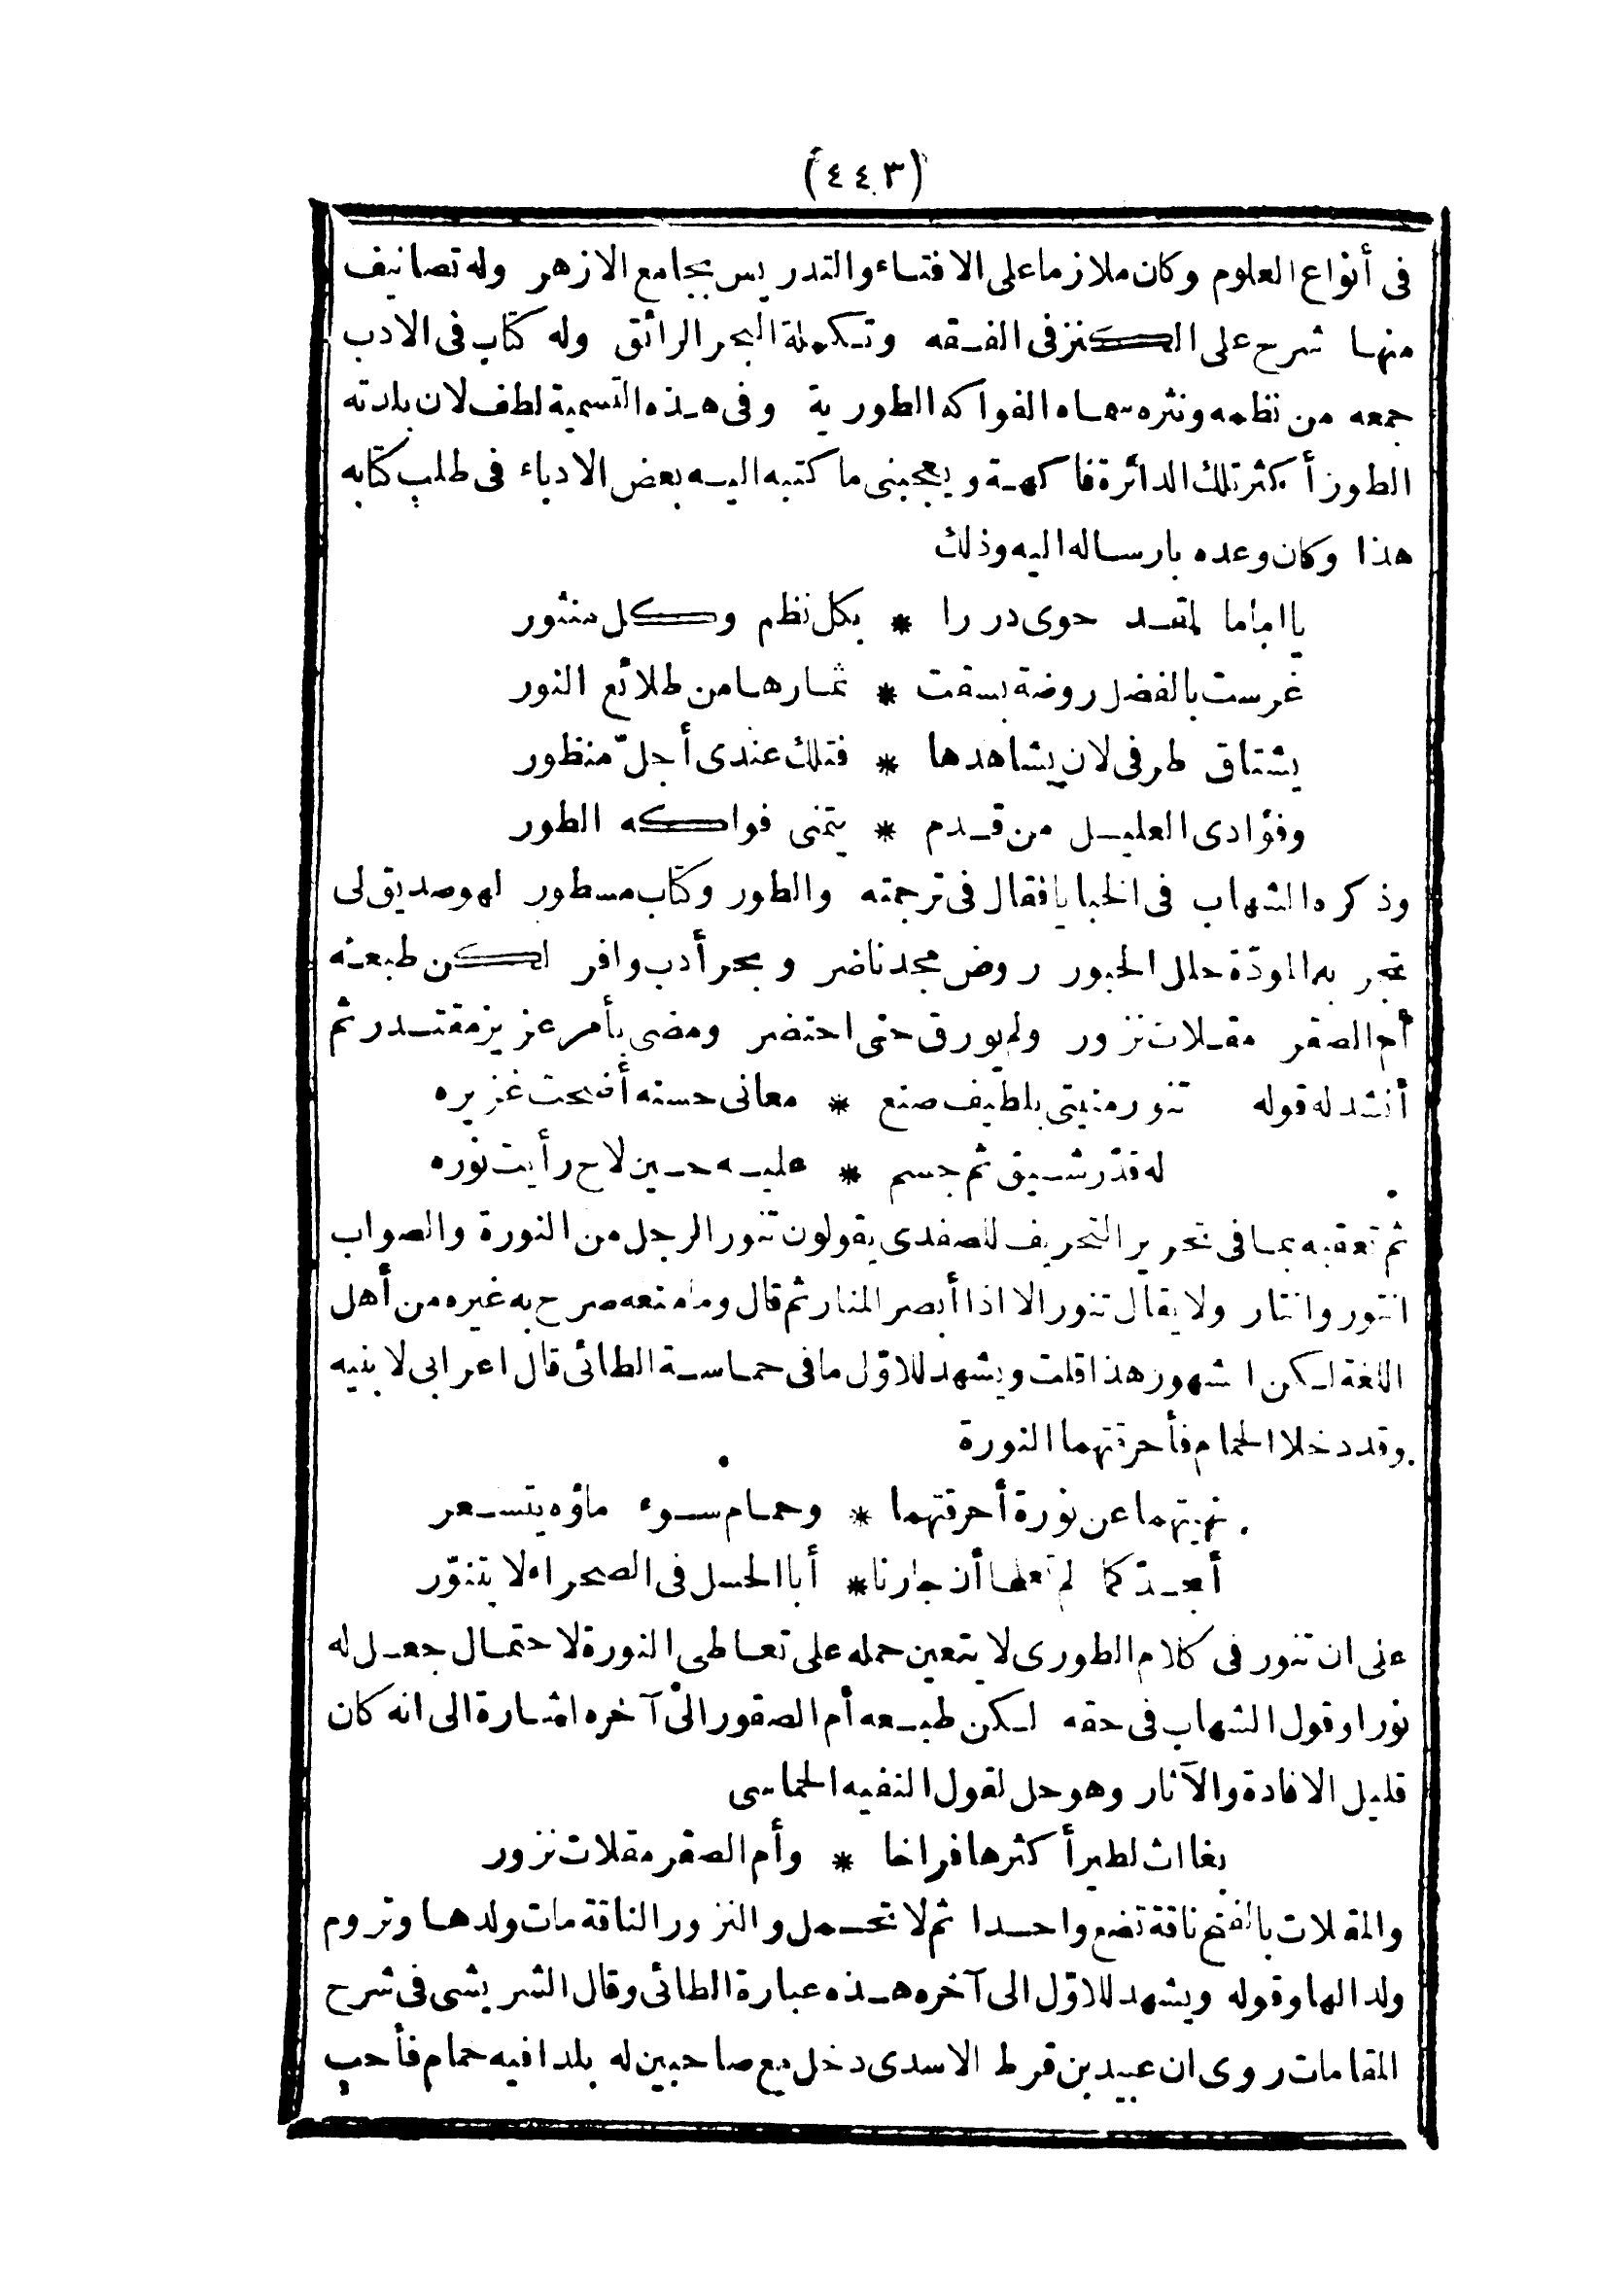 (٤٤٣)
فى أنواع العلوم وكان ملازما على الافتاء والتدريس بجامع الازهر وله تصانيف
منها شرح على الكنز فى الفقه وتكملة البحر الرائق وله كتاب فى الادب
جمعه من نظمه ونثره سماه الفواكه الطورية وفى هذه التسمية لطف لان بلدته
الطور أكثر تلك الدائرة فاكهة ويعجبنى ما كتبه اليه بعض الادباء فى طلب كتابه
هذا وكان وعده بارساله اليه وذلك
يا اماما لقد حوى دررا * بكل نظم وكل منثور
غرست بالفضل روضة بسقت * ثمارها من طلائع النور
يشتاق طرفى لان يشاهدها * فتلك عندى أجلّ منظور
وفؤادى العليل من قدم * يتمنى فواكه الطور
وذكره الشهاب فى الخبايا فقال فى ترجمته والطور وكتاب مسطور لهو صديق لى
تجر به المودّة حلل الحبور روض مجد ناضر وبحر أدب وافر لكن طبعته
أم الصقر مقلات نزور ولم يورق حتى احتضر ومضى بأمر عزيز مقتدر ثم
أنشد له قوله تنور منيتى بلطيف صنع * معانى حسنه أضحت غزيره
له قدّ رشيق ثم جسم * عليه حين لاح رأيت نوره
ثم تعقبه بما فى تحرير التحريف للصفدى يقولون تنور الرجل من النورة والصواب
انتور وانتار ولا يقال تنور الا اذا أبصر المنار ثم قال وما منعه صرح به غيره من أهل
اللغة لكن ا شهور هذا قلت ويشهد للاوّل ما فى حماسة الطائى قال اعرابى لابنيه
وقد دخلا الحمام فأحرقتهما النورة
نهيتهما عن نورة أحرقتهما * وحمام سوء ماؤه يتسعر
أجدّكما لم تعلما أن جارنا * أبا الحسل فى الصحراء لا يتنوّر
على ان تنور فى كلام الطورى لا يتعين حمله على تعاطى النورة لاحتمال جعل له
نورا وقول الشهاب فى حقه لكن طبعه أم الصقور الى آخره اشارة الى انه كان
قليل الافادة والآثار وهو حل لقول النفيه الحماسى
بغاث لطير أكثرها فراخا * وأم الصقر مقلات نزور
والمقلات بالفتح ناقة تضع واحدا ثم لا تحمل والنزور الناقة مات ولدها وتروم
ولدا لها وقوله ويشهد للاوّل الى آخره هذه عبارة الطائى وقال الشريشى فى شرح
المقامات روى ان عبيد بن قرط الاسدى دخل مع صاحبين له بلدا فيه حمام فأحب